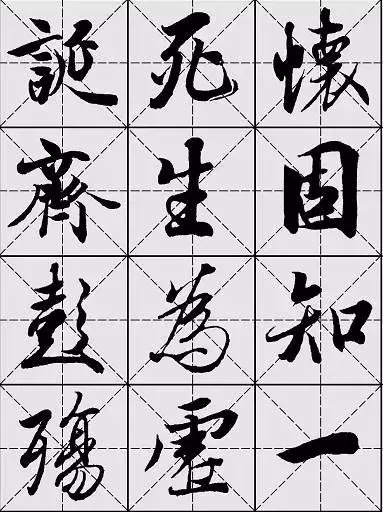 懷固知一
死生為虛
誕齊彭殤